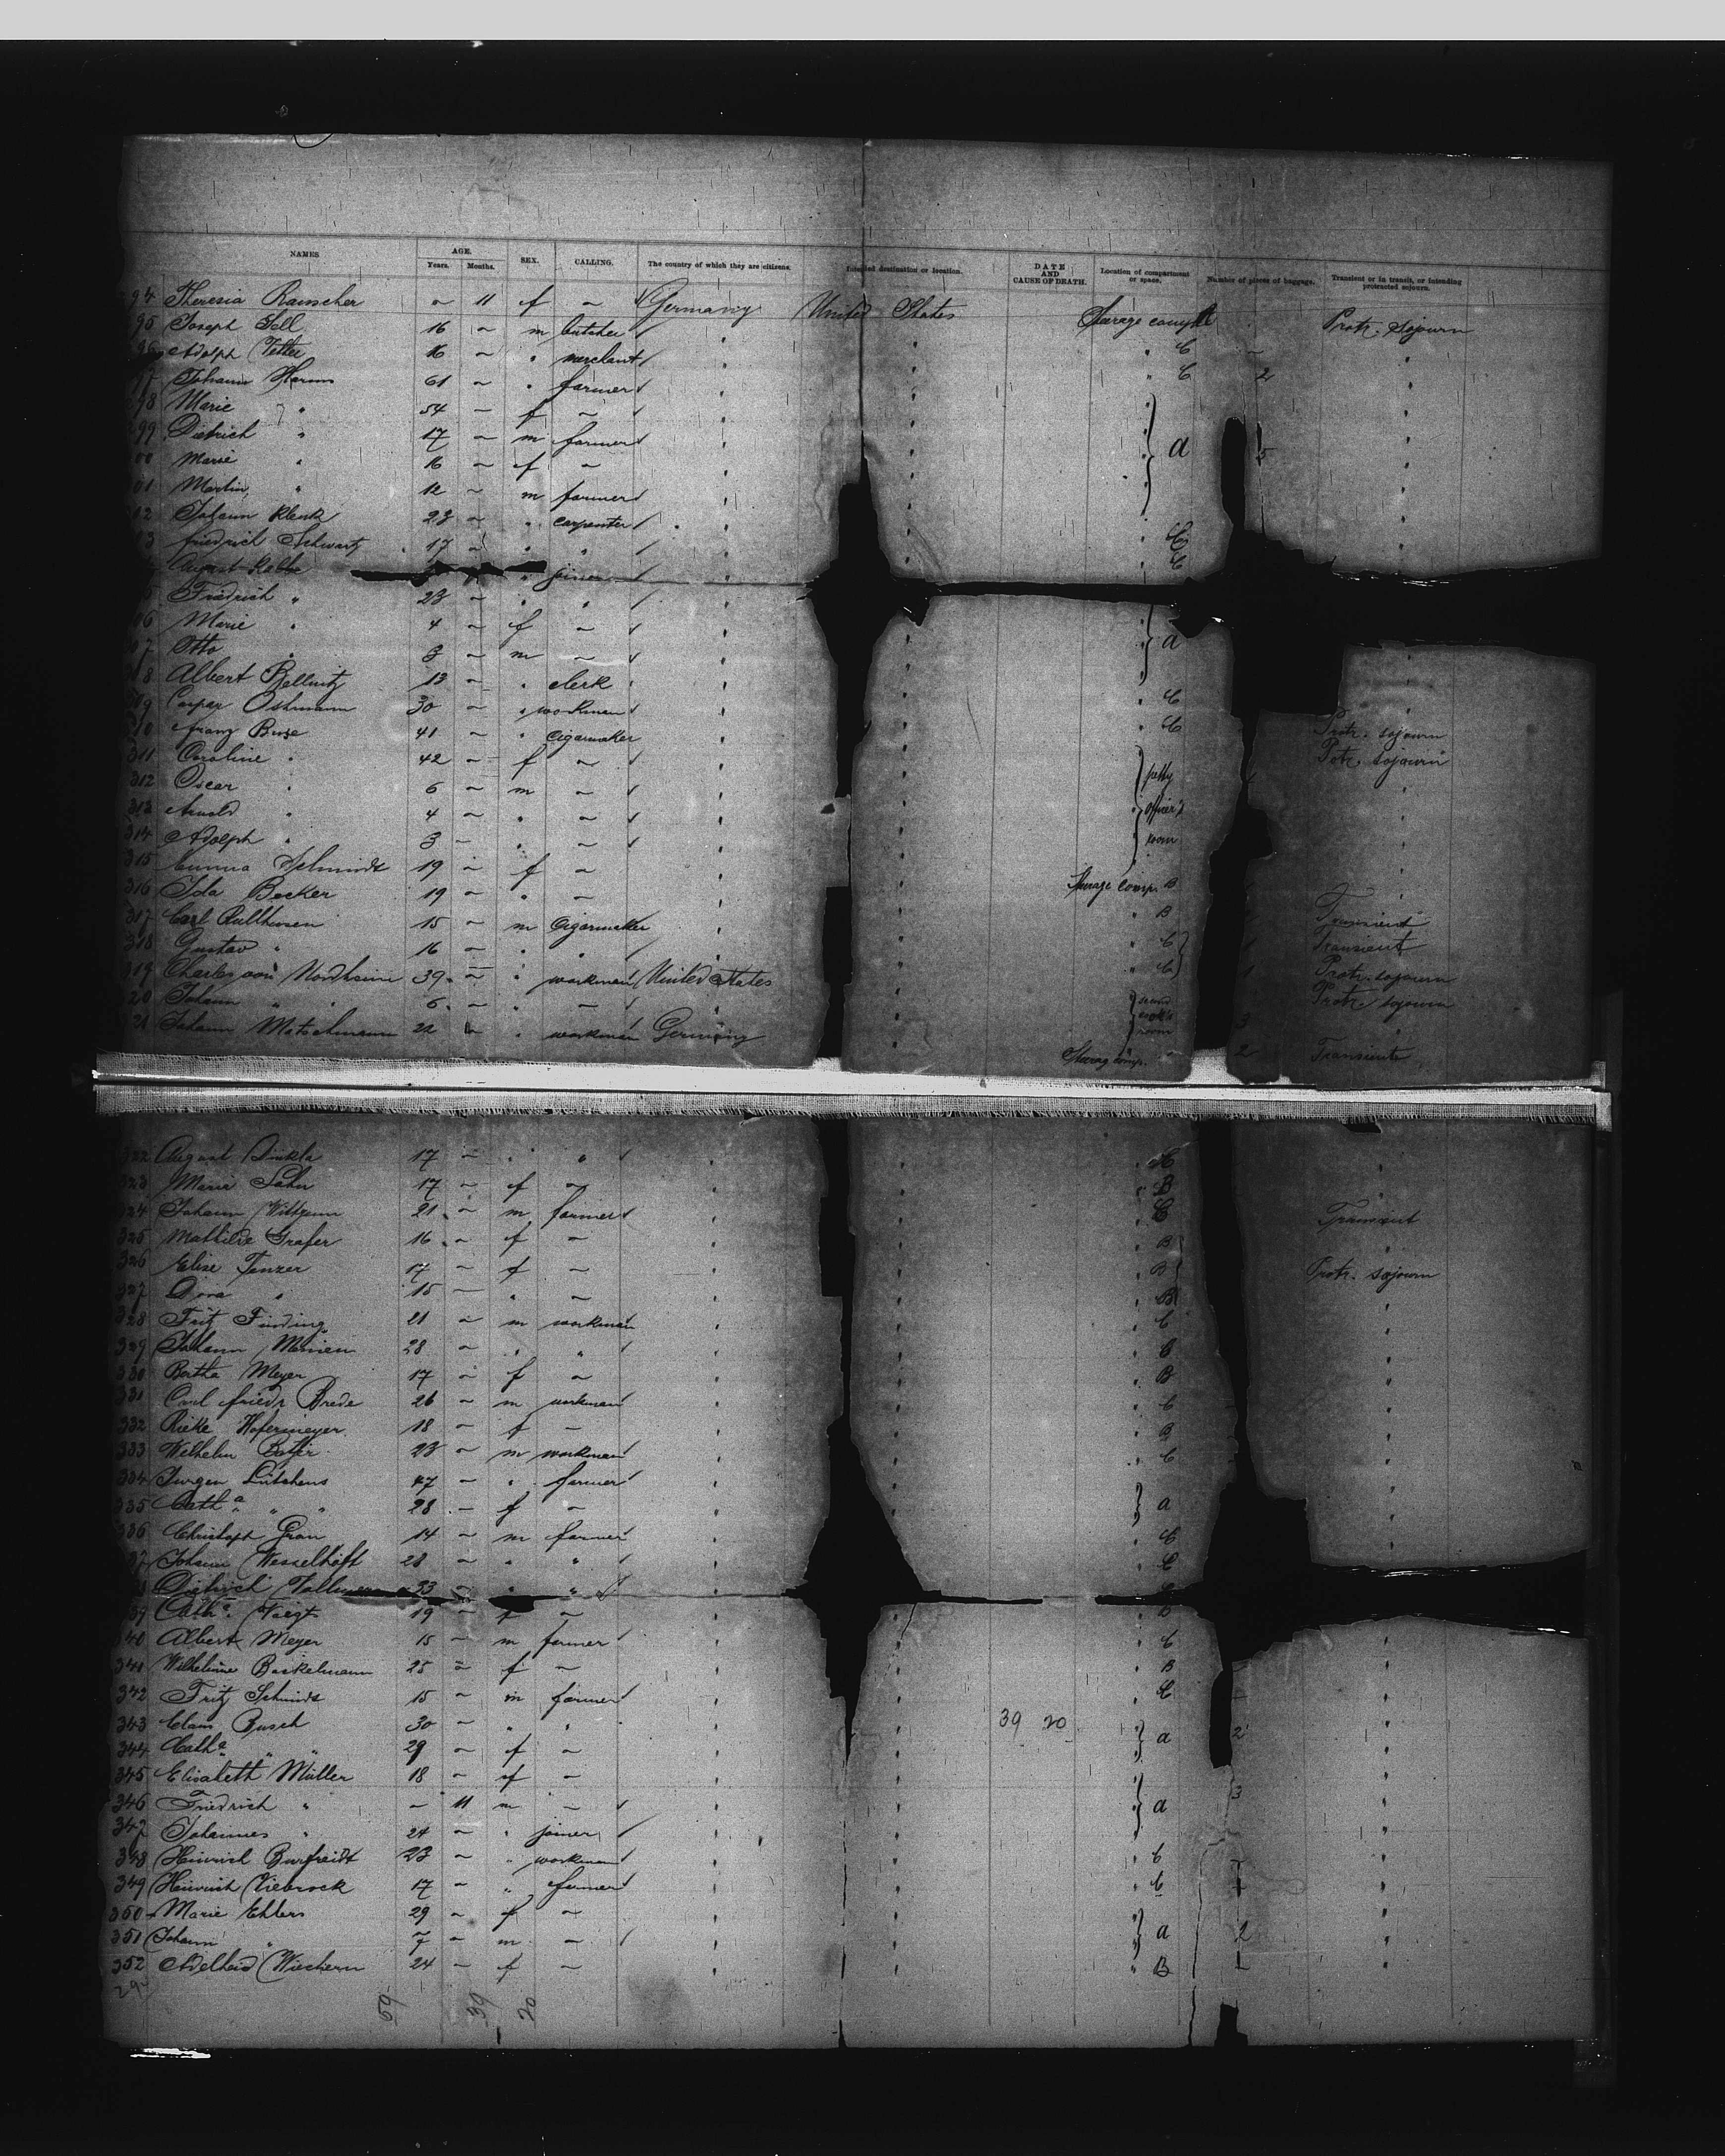 NAMES AGE. Years. Months. SEX. CALLING. The country of which they are citizens. Intended destination or location. DATE AND CAUSE OF DEATH. Location of compartment or space. Number of pieces of baggage. Transient or in transit, or intending protracted sojourn.
94 Theresia Rauscher ~ 11 f ~ Germany United States Steerage Protr. Sojourn
95 Joseph Sell 16 ~ m butcher " " " C ~ "
96 Adolph Vetter 16 ~ " merchant " " " C 2 "
97 Johann Harms 61 ~ " farmer
98 Marie " 54 ~ f ~
99 Dietrich " 17 ~ m farmer a 5
00 Marie " 16 ~ f ~
01 Martin " 12 ~ m farmer
02 Johann Klenk 23 ~ " carpenter C
03 Friedrich Schwartz 17 ~ " " C
August joiner
05 Friedrich " 23 ~ " "
06 Marie " 4 ~ f ~ a
07 Otto " 3 ~ m ~
08 Albert 13 ~ " clerk C
09 Casper Ostmann 30 ~ " workman C Protr. sojourn
310 Franz Buse 41 ~ " cigarmaker Potr. sojourn
311 Caroline " 42 ~ f ~ petty
312 Oscar " 6 ~ m ~ officer's
313 Arnold " 4 ~ " ~ room
314 Adolph " 3 ~ " ~
315 Schmidt 19 ~ f ~ Steerage comp. B
316 Ida Becker 19 ~ " ~ B Transient
317 Carl 15 ~ m cigarmaker C Transient
318 Gustav " 16 ~ " " C 1 Protr. sojourn
319 Charles von Nordheim 39 ~ " workman United States second Protr. sojourn
20 Johann " " 6 ~ " ~ " cook's room 3
21 Johann Matschmann 22 ~ " workman Germany Steerag comp. 2 Transient
322 August Dinkla 17 ~ " " C
323 Marie Sahn 17 ~ f ~ B
324 Johann 21 ~ m farmer C Transient
325 Mathilde Grafer 16 ~ f ~ B
326 Elise Tenzer 17 ~ f ~ B Protr. sojourn
327 Dora " 15 ~ " ~ B
328 Fritz 21 ~ m workman C
329 Johann 28 ~ " " C
330 Bertha Meyer 17 ~ f ~ B
331 Carl Friedr Brede 26 ~ m workman C
332 Rieke Hofermeyer 18 ~ f ~ B
333 Wilhelm 23 ~ m workman C
334 Jurgen Lütchens 47 ~ " farmer
335 Catha " " 28 ~ f ~ a
336 Christoph Gran 14 ~ m farmer C
337 Johann Wesselhöft 28 ~ " " C
Dietrich 33 ~ " "
339 Catha. Voigt 19 ~ f ~ B
340 Albert Meyer 15 ~ m farmer C
341 Wilhelmine Borkelmann 25 ~ f ~ B
342 Fritz Schmidt 15 ~ m farmer C
343 Claus Busch 30 ~ " " 39 20 a 2
344 Catha " " 29 ~ f ~
345 Elisabeth Müller 18 ~ f ~ 3
346 Friedrich " ~ 11 m ~ a
347 Johannes " 24 ~ " joiner
348 Heinrich Burfeidt 23 ~ " workman C
349 Heinrich Viebrock 17 ~ " farmer C 1
350 Marie Ehlers 29 ~ f ~
351 Johann " 7 ~ m ~ a 2
352 Adelheid Wichern 24 ~ f ~ B 1
59 39 20